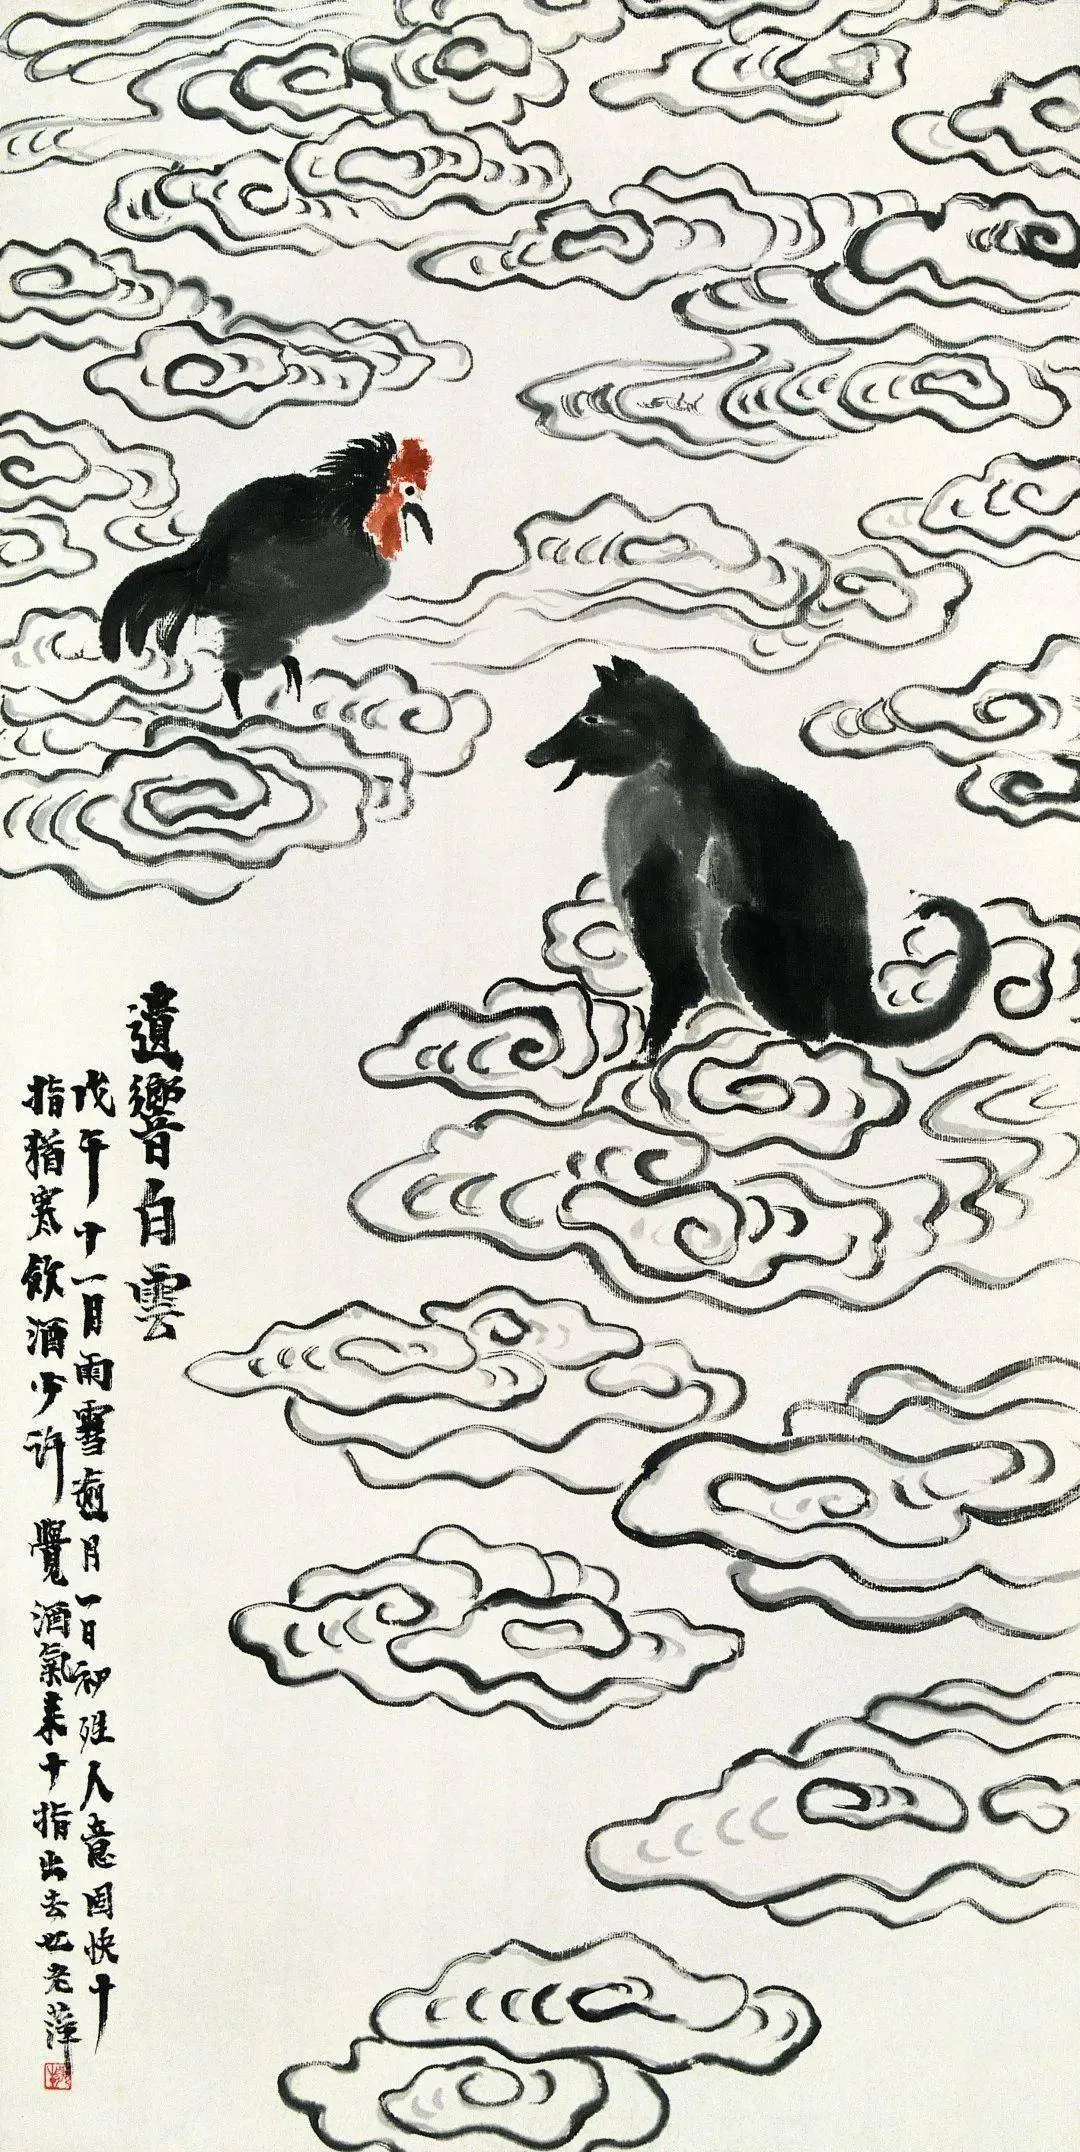 遺響白雲
戊午十一月雨雪逾月一日初夝人意固快十
指猶寒飲酒少許覺酒氣來十指出去也老萍